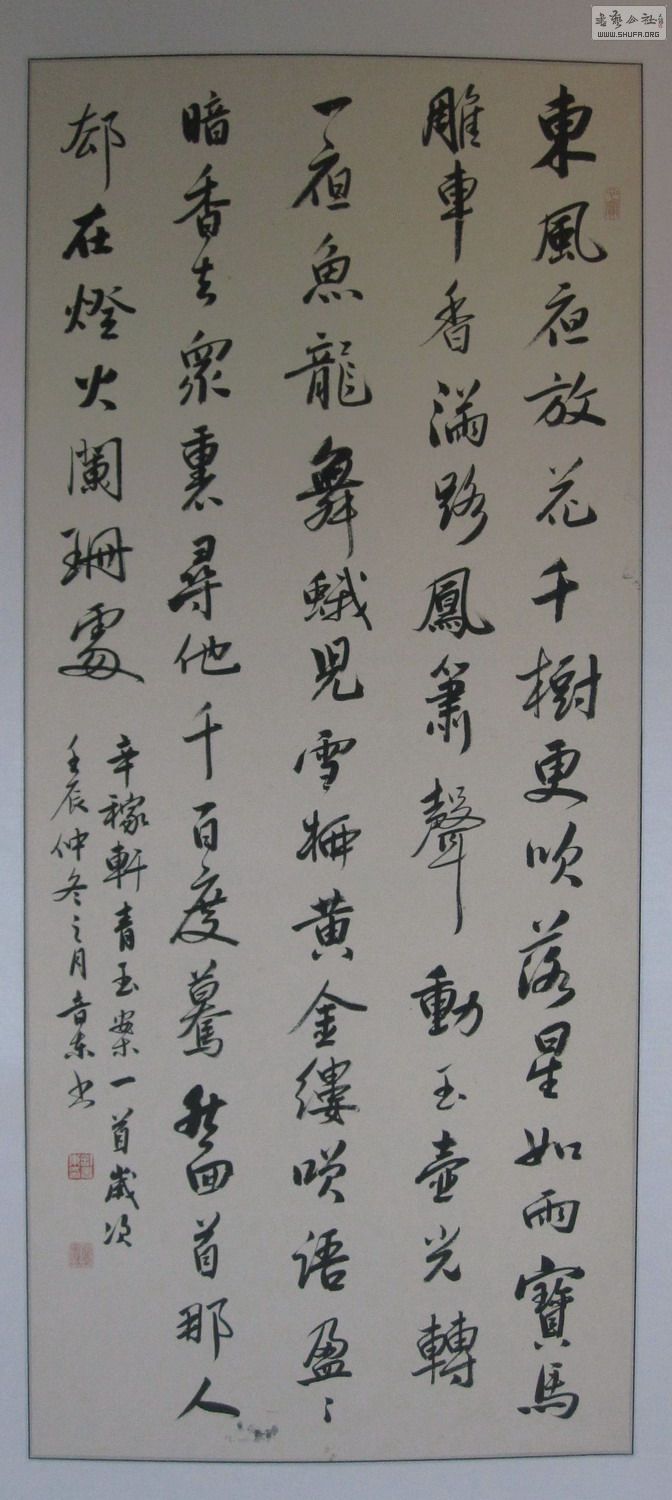 書藝公社
WWW.SHUFA.ORG
東風夜放花千樹更吹落星如雨寶馬
雕車香滿路鳳簫聲動玉壺光轉
一夜魚龍舞蛾兒雪柳黃金縷咲語盈〻
暗香去眾裏尋他千百度驀然回首那人
却在燈火闌珊處
辛稼軒青玉案一首歲次
壬辰仲冬之月